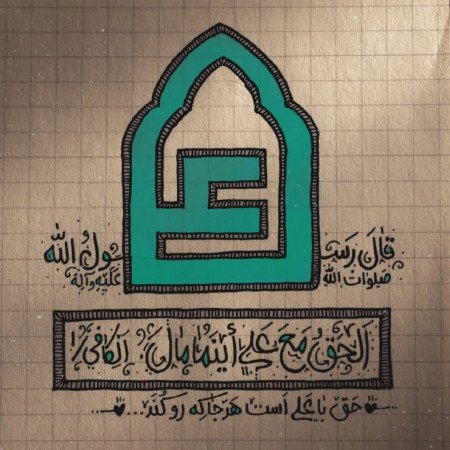 علی
قال رسول الله
صلوات الله علیه و آله
الحق مع علي أينما مال الكافي
حق با علی است هر جا که رو کند...